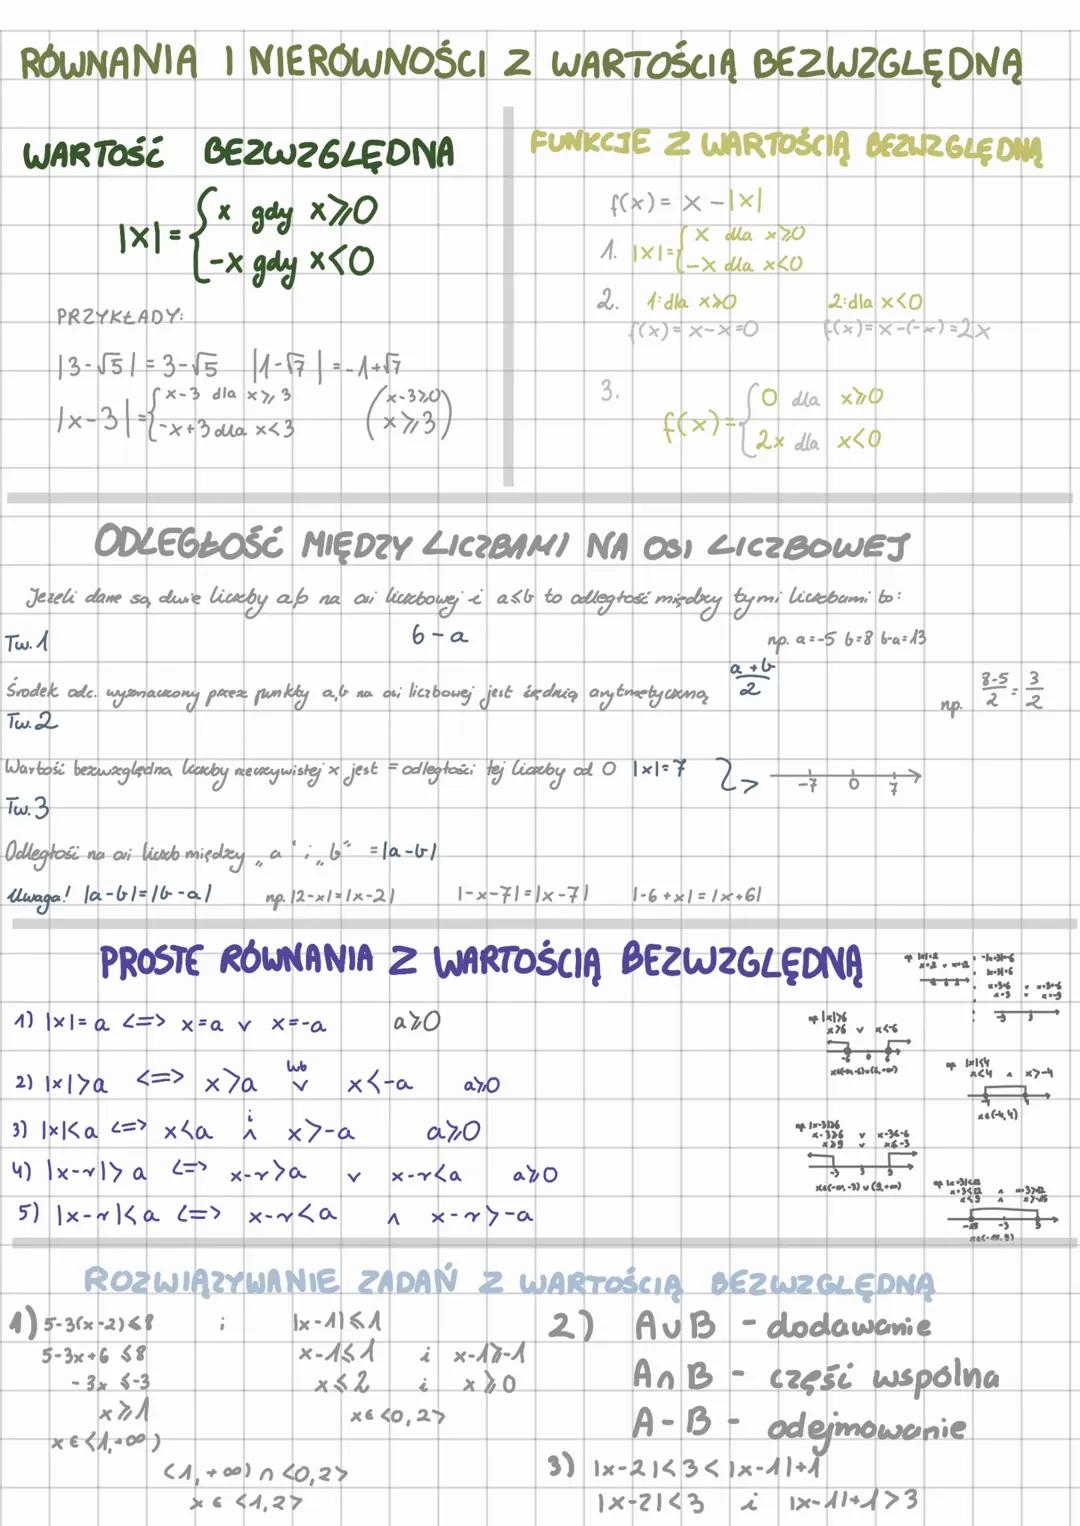 RÓWNANIA I NIERÓWNOŚCI Z WARTOŚCIĄ BEZWZGLĘDNĄ
WARTOŚĆ BEZWZGLĘDNA
|x|={x gdy x⩾0
-x gdy x<0
PRZYKŁADY:
|3-√5|=3-√5 |1-√7|=-1+√7
|x-3|={x-3 dla x⩾3
-x+3 dla x<3
(x-3⩾0
x⩾3)
FUNKCJE Z WARTOŚCIĄ BEZWZGLĘDNĄ
f(x)= x-|x|
1. |x|={x dla x⩾0
-x dla x<0
2. 1:dla x⩾0 2:dla x<0
f(x)=x-x=0 f(x)=x-(-x)=2x
3.
f(x)={0 dla x⩾0
2x dla x<0
ODLEGŁOŚĆ MIĘDZY LICZBAMI NA OSI LICZBOWEJ
Jeżeli dane są dwie liczby a,b na osi liczbowej i a≤b to odległość między tymi liczbami to:
Tw. 1 b-a np. a=-5 b=8 b-a=13
Środek odc. wyznaczony przez punkty a,b na osi liczbowej jest średnią arytmetyczną a+b/2 np. 8-5/2=3/2
Tw. 2
Wartość bezwzględna liczby rzeczywistej x jest = odległości tej liczby od 0 |x|=7
-7 0 7
Tw. 3
Odległość na osi liczb między „a" i „b" =|a-b|
Uwaga! |a-b|=|b-a| np. |2-x|=|x-2| |-x-7|=|x-7| |-6+x|=|x+6|
PROSTE RÓWNANIA Z WARTOŚCIĄ BEZWZGLĘDNĄ
1) |x|=a <=> x=a v x=-a a⩾0
2) |x|>a <=> x>a lub v x<-a a⩾0
3) |x|<a <=> x<a i ∧ x>-a a⩾0
4) |x-r|>a <=> x-r>a v x-r<a a⩾0
5) |x-r|<a <=> x-r<a ∧ x-r>-a
np |x|>6
x>6 v x<-6
np |x|<4
x<4 ∧ x>-4
x∈(-4,4)
x∈(-∞,-3)∪(9,+∞)
ROZWIĄZYWANIE ZADAŃ Z WARTOŚCIĄ BEZWZGLĘDNĄ
1) 5-3(x-2)≤8 i |x-1|≤1
5-3x+6≤8 x-1≤1 i x-1⩾-1
-3x≤-3 x≤2 i x⩾0
x⩾1 x∈<0,2>
x∈<1,+∞)
<1,+∞)∩<0,2>
x∈<1,2>
2) A∪B - dodawanie
A∩B - część wspólna
A-B - odejmowanie
3) |x-2|<3<|x-1|+1
|x-2|<3 i |x-1|+1>3